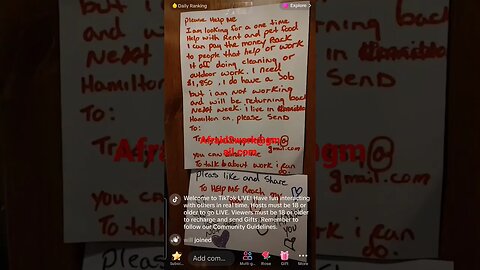 Daily Ranking
Explore
Please Help ME
I am looking for a one time
Help with Rent and pet food
I can pay the money Back
to people that help or work
it off doing cleaning or
outdoor work. I need
$1,850, I do have a Job
but i am not working
and will be returning back
Next week. i live in
Hamilton on. please SEND
To:
@
gmail.com
you can
To talk about work i can
do.
pleas like and Share
To HELP ME Reach my
Welcome to TikTok LIVE! Have fun interacting
with others in real time. Hosts must be 18 or
older to go LIVE. Viewers must be 18 or older
to recharge and send Gifts. Remember to
follow our Community Guidelines.
will joined
Add com...
Rose
Gift
More